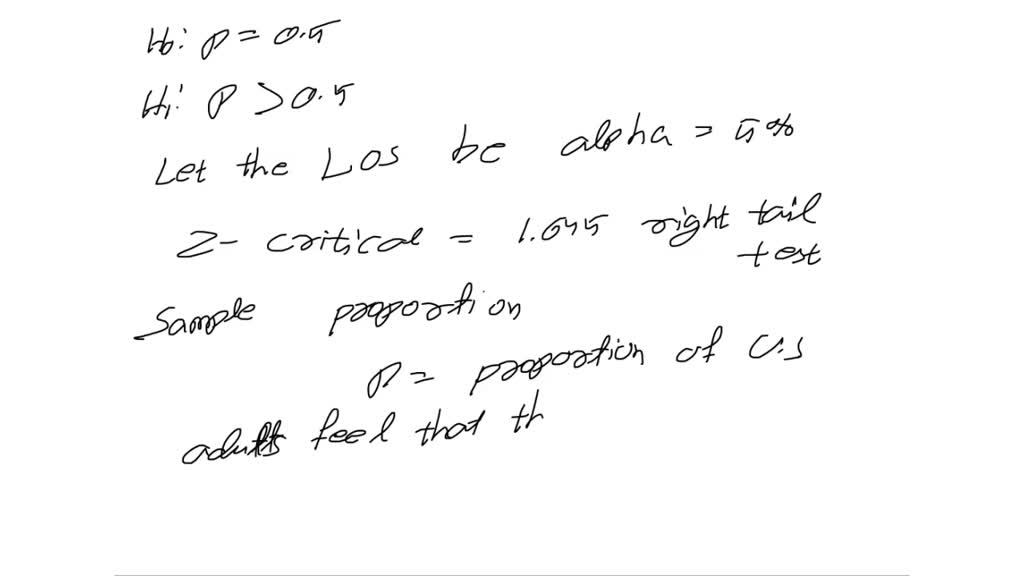 H₀: p = 0.5
H₁: P > 0.5
Let the LOS be alpha = 5%
Z- critical = 1.645 right tail test
Sample proportion
p = proportion of U.S
adults feel that th